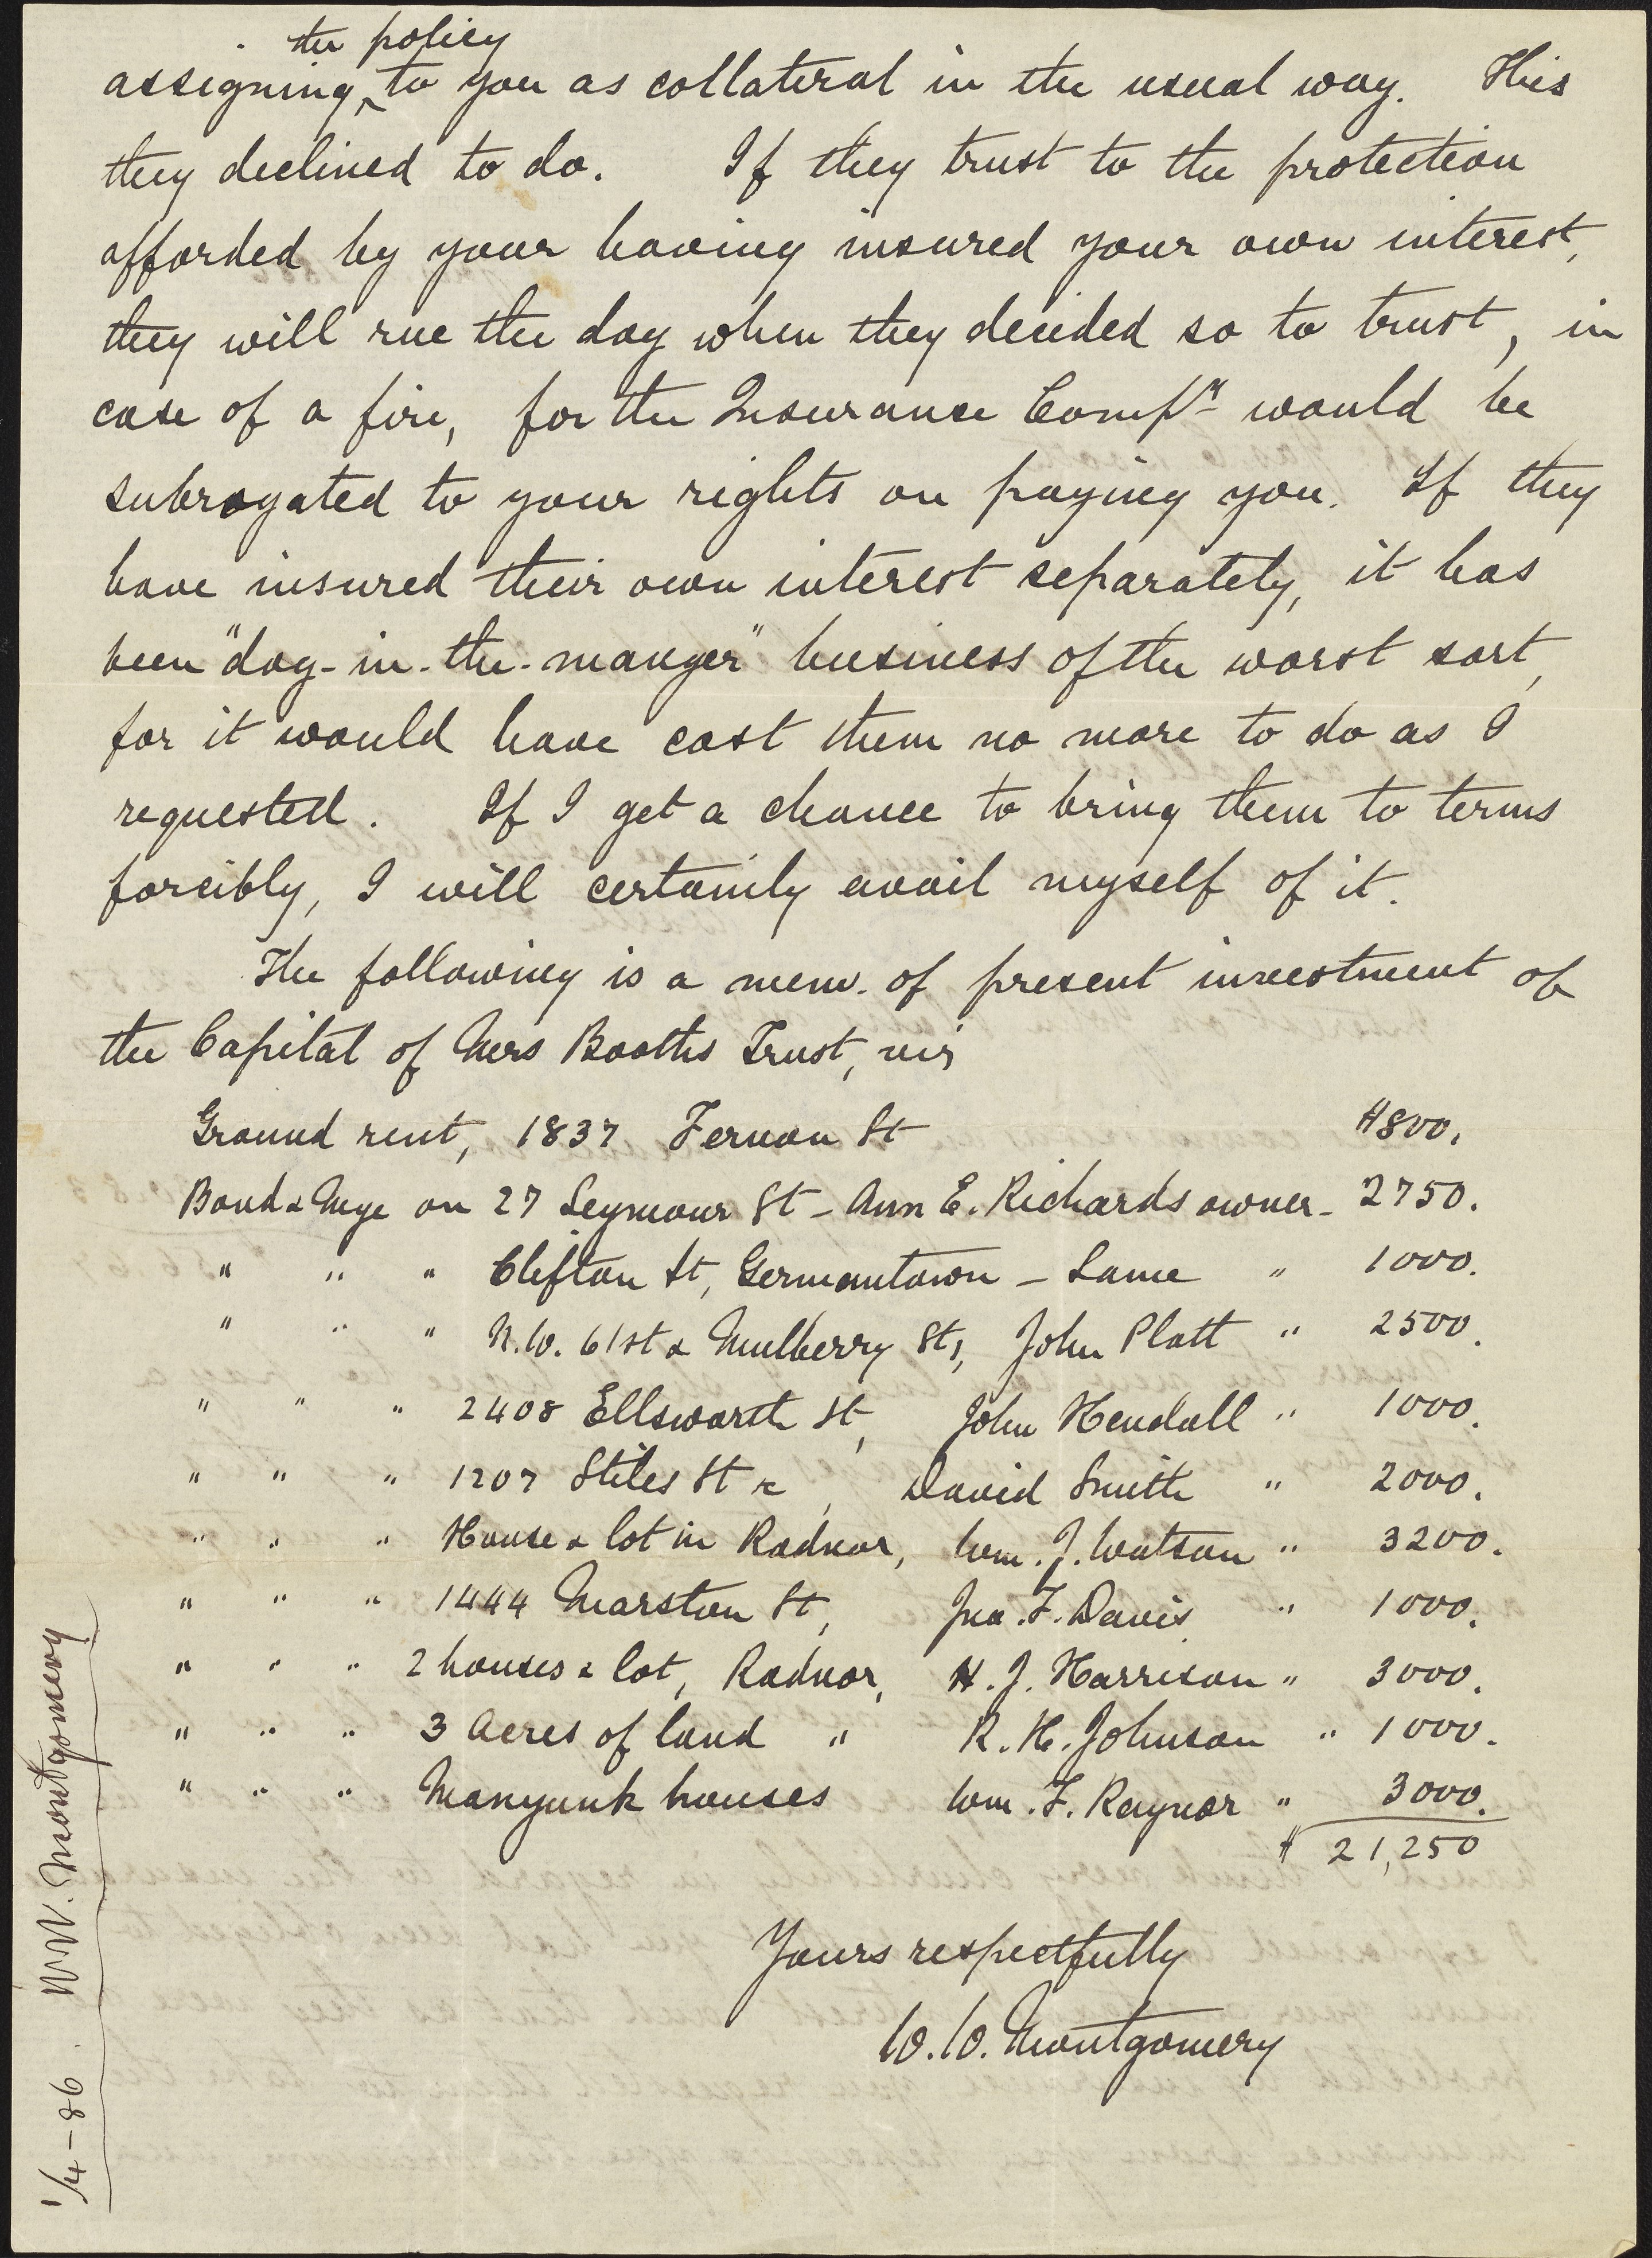 the policy
assigning ‸ to you as collateral in the usual way. This
they declined to do. If they trust to the protection
afforded by your having insured your own interest,
they will rue the day when they decided so to trust, in
case of a fire, for the Insurance Compy would be
subrogated to your rights on paying you. If they
have insured their own interest separately, it has
been "dog-in-the-manger" business of the worst sort,
for it would have cost them no more to do as I
requested. If I get a chance to bring them to terms
forcibly, I will certainly avail myself of it.
The following is a mem. of present investment of
the Capital of Mrs Booths Trust, viz
Ground rent, 1837 Fernon St $800.
Bond & Mge on 27 Seymour St - Ann E. Richards owner - 2750.
" " " Clifton St, Germantown - Same " 1000.
" " " N.W. 61st & Mulberry Sts, John Platt " 2500.
" " " 2408 Ellsworth St, John Kendall " 1000.
" " " 1207 Stiles St &, David Smith " 2000.
" " " House & lot in Radnor, Wm. J. Watson " 3200.
" " " 1444 Marston St, Jno. F. Davis " 1000.
" " " 2 houses & lot, Radnor, H. J. Harrison " 3000.
" " " 3 Acres of land " R. H. Johnson " 1000.
" " " Manyunk houses Wm. F. Raynor " 3000.
$ 21,250
Yours respectfully
W. W. Montgomery
1/4-86. W.W. Montgomery